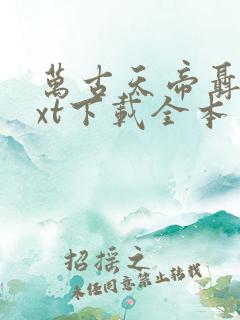 萬古天帝聶
xt下載全本
招摇之
未经同意禁止转载